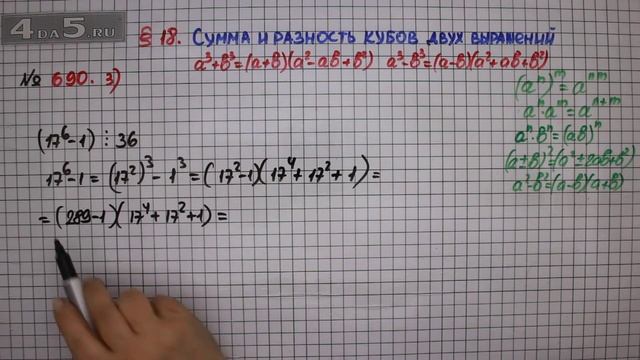 4DA5.RU
§ 18. Сумма и разность кубов двух выражений
a³+b³=(a+b)(a²-ab+b²) a³-b³=(a-b)(a²+ab+b²)
№ 690. 3)
(aⁿ)ᵐ=aⁿᵐ
aⁿ·aᵐ=aⁿ⁺ᵐ
aⁿ·bⁿ=(ab)ⁿ
(a±b)²=(a²±2ab+b²)
a²-b²=(a-b)(a+b)
(17⁶-1)⋮36
17⁶-1=(17²)³-1³=(17²-1)(17⁴+17²+1)=
=(289-1)(17⁴+17²+1)=